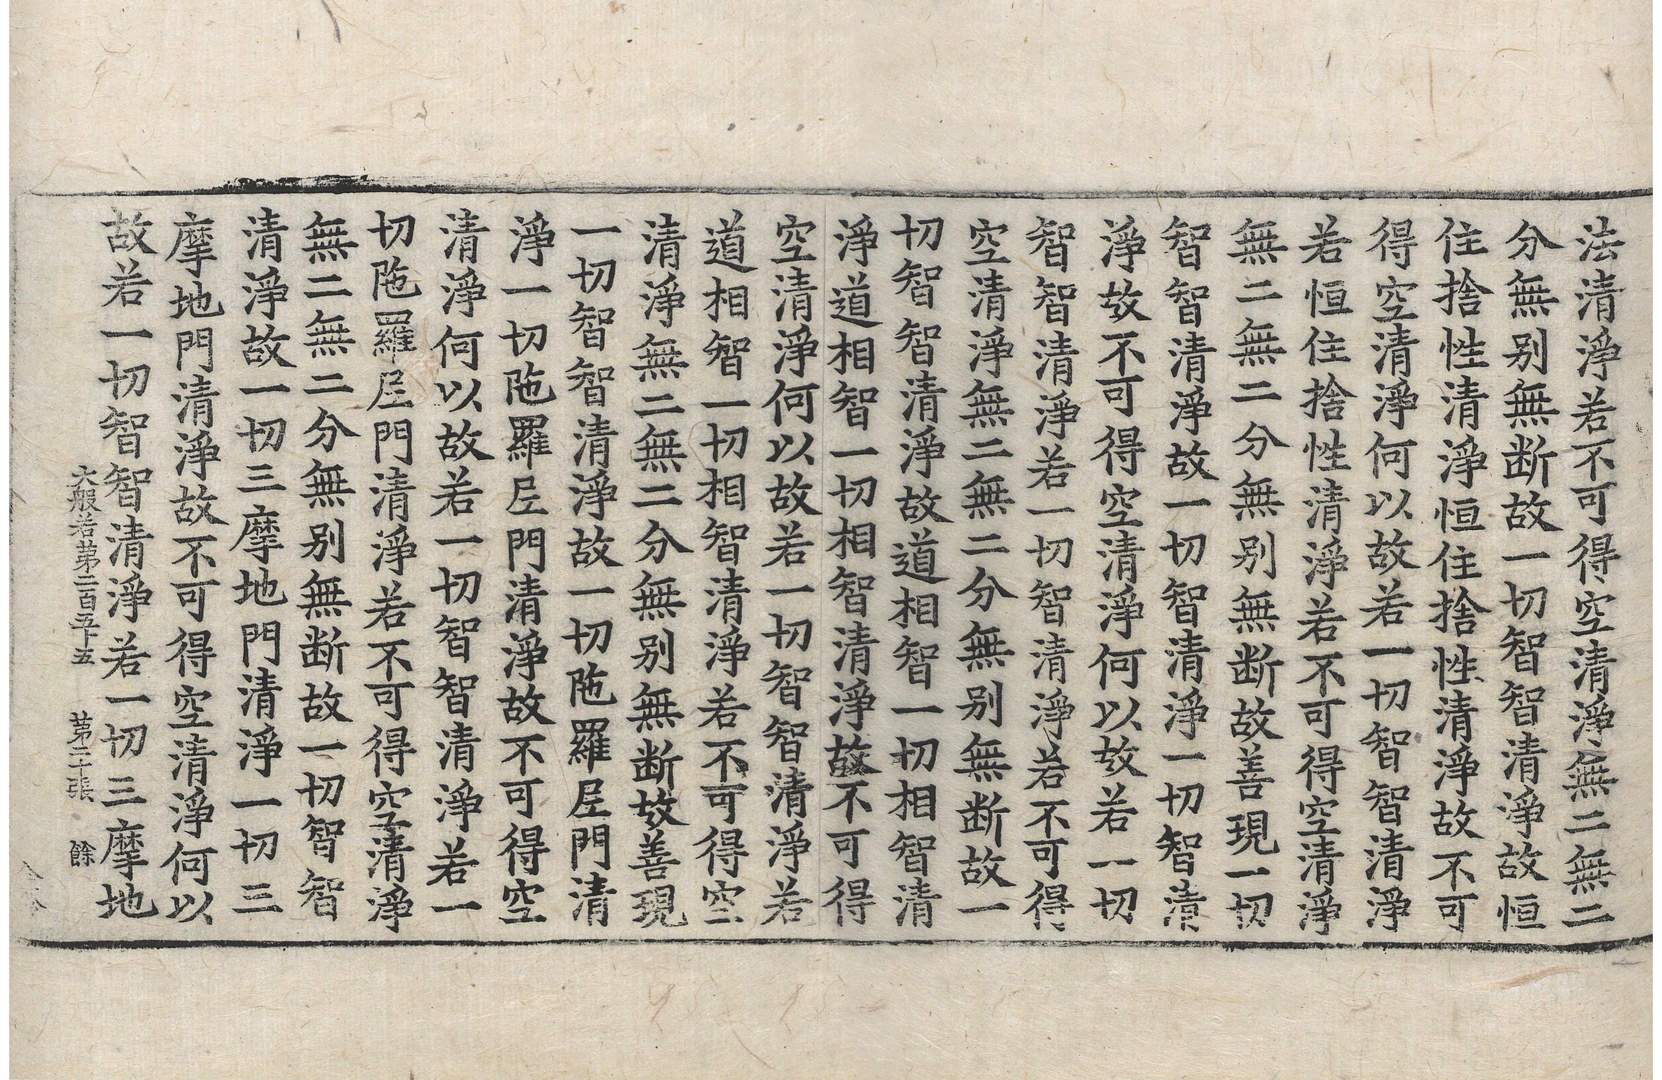 法清淨若不可得空清淨無二無二
分無别無断故一切智智清淨故恒
住捨性清淨恒住捨性清淨故不可
得空清淨何以故若一切智智清淨
若恒住捨性清淨若不可得空清淨
無二無二分無别無断故善現一切
智智清淨故一切智清淨一切智清
淨故不可得空清淨何以故若一切
智智清淨若一切智清淨若不可得
空清淨無二無二分無别無断故一
切智智清淨故道相智一切相智清
淨道相智一切相智清淨故不可得
空清淨何以故若一切智智清淨若
道相智一切相智清淨若不可得空
清淨無二無二分無别無断故善現
一切智智清淨故一切陁羅尼門清
淨一切陁羅尼門清淨故不可得空
清淨何以故若一切智智清淨若一
切陁羅尼門清淨若不可得空清淨
無二無二分無别無断故一切智智
清淨故一切三摩地門清淨一切三
摩地門清淨故不可得空清淨何以
故若一切智智清淨若一切三摩地
大般若第二百五十五 第二十張 餘